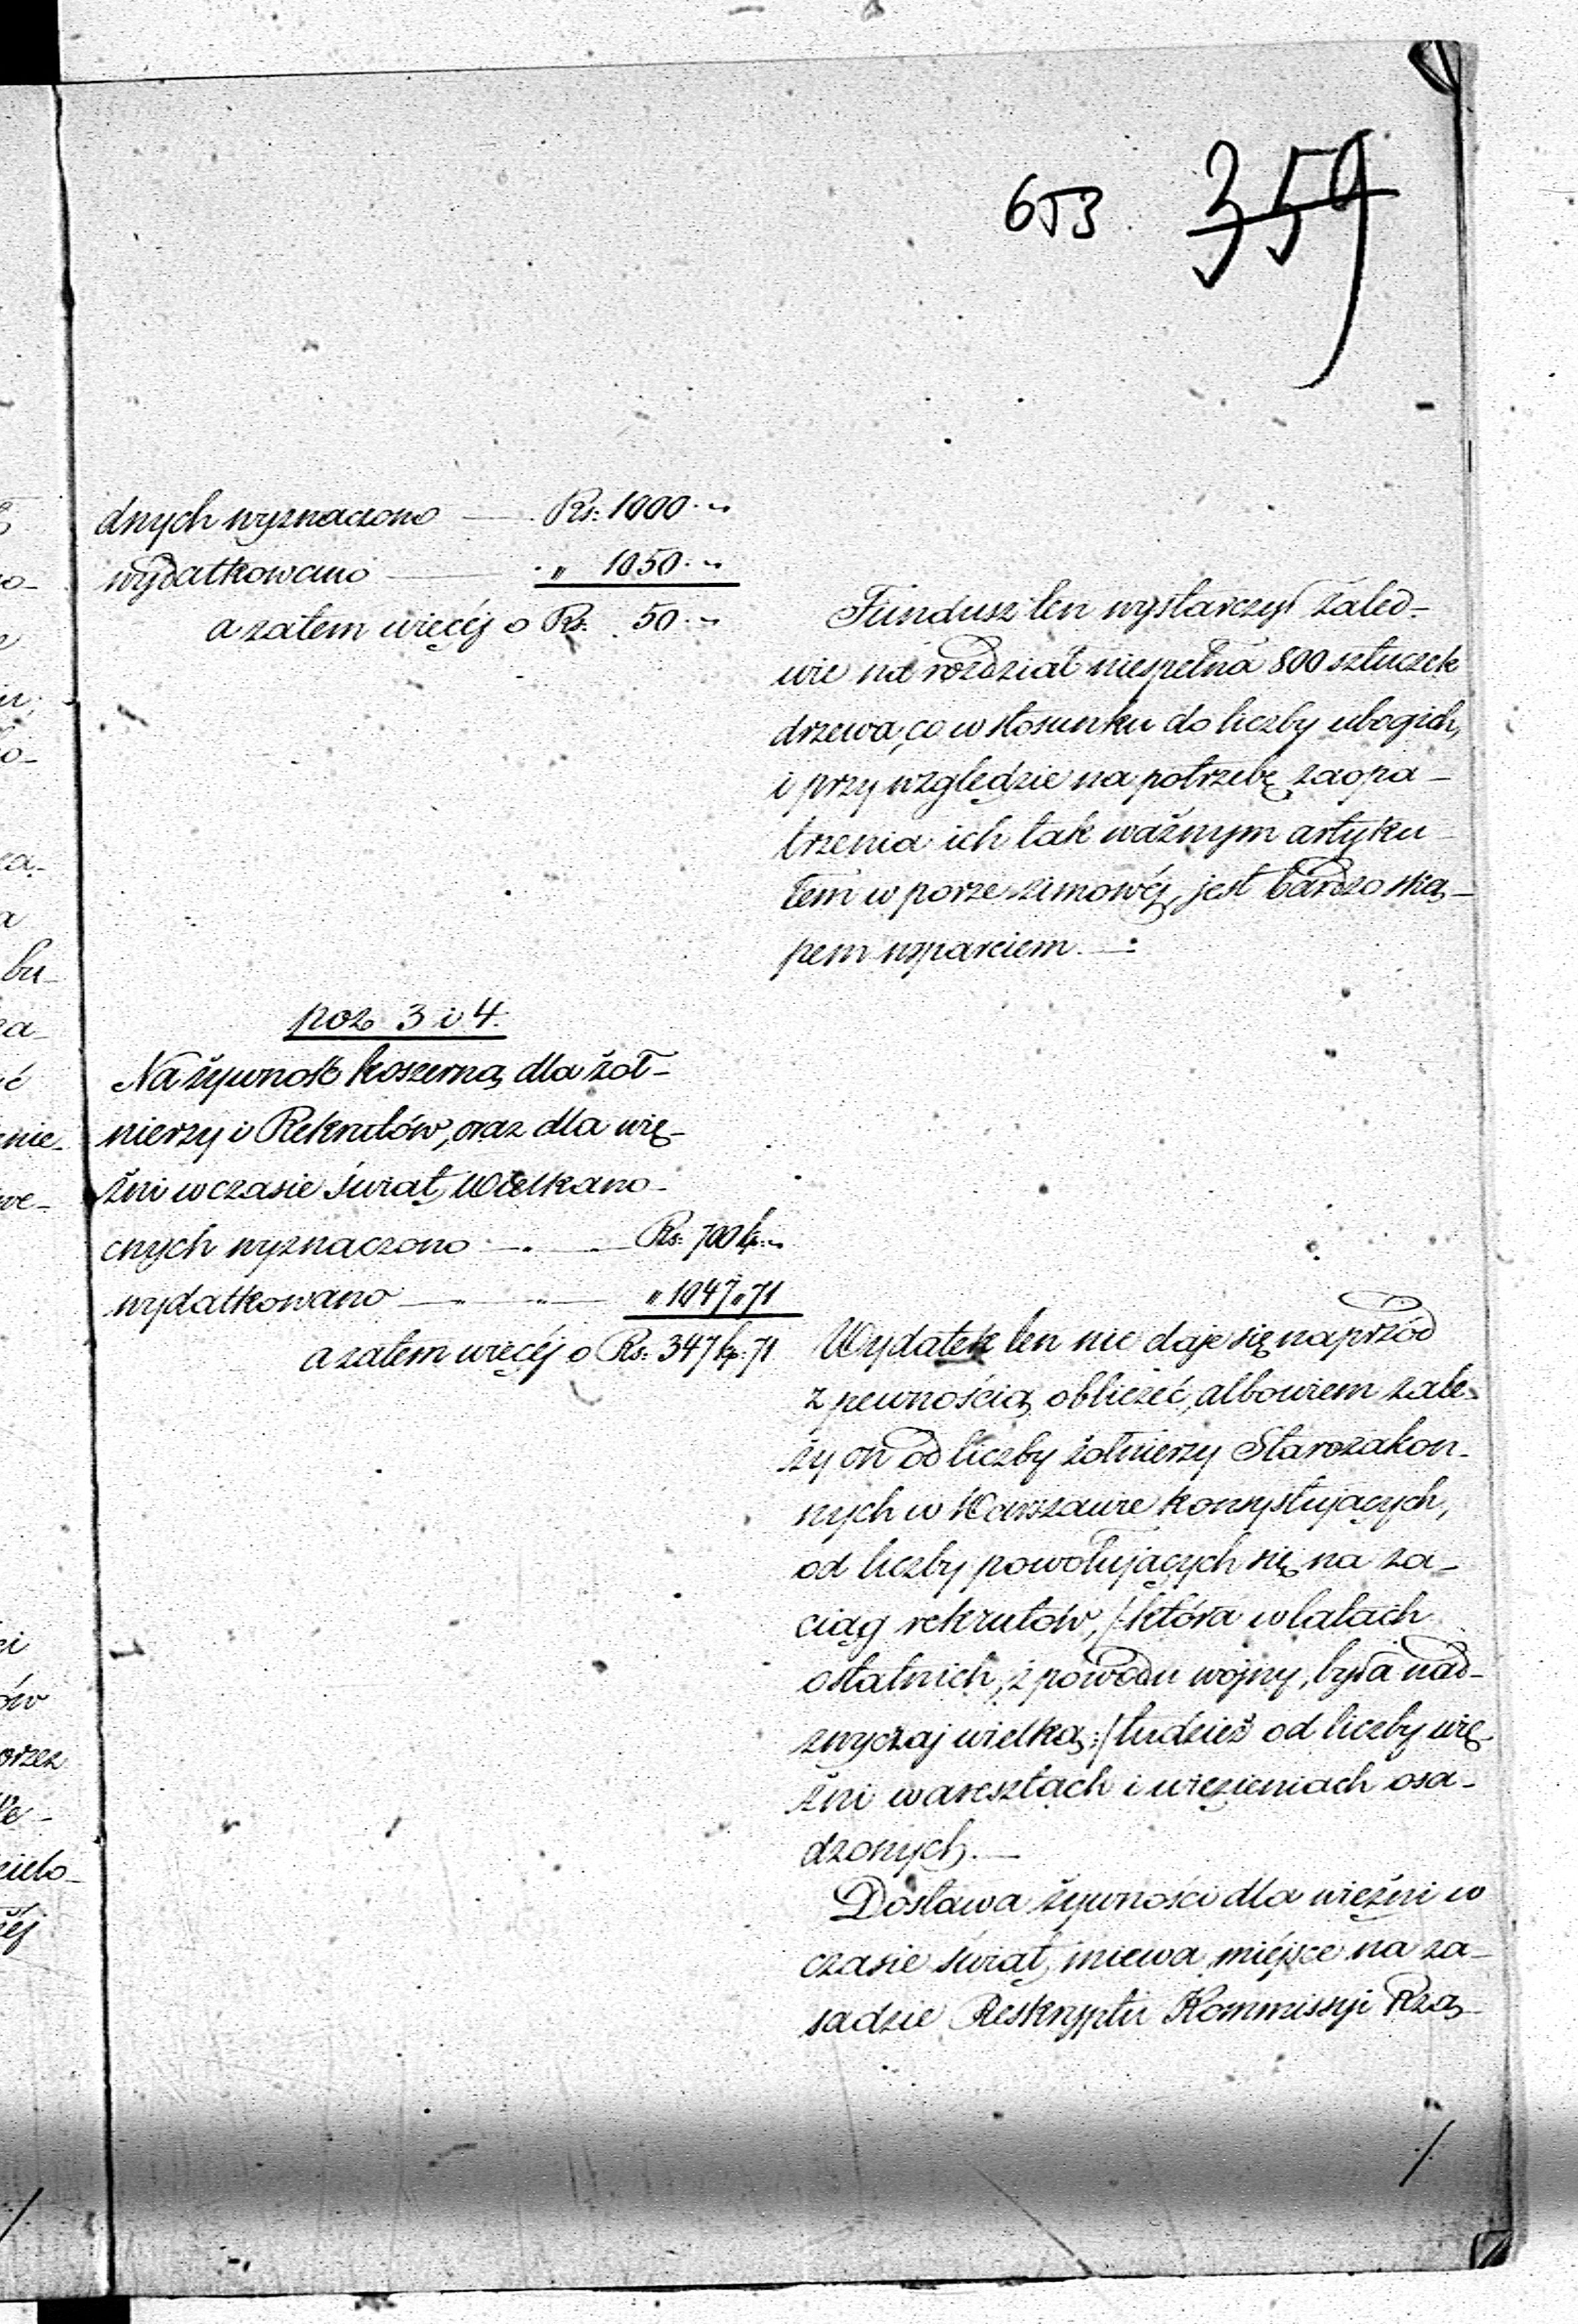 653. 359
dnych wyznaczono — Rs: 1000 . „
wydatkowano — „ 1050 . „
a zatem więcéj o Rs: 50 . „
Fundusz ten wystarczył zaled-
wie na rozdział niespełna 800 sztuczek
drzewa, co w stosunku do liczby ubogich,
i przy względzie na potrzebę zaopa-
trzenia ich tak ważnym artyku-
łem w porze zimowéj, jest bardzo ską-
pem wsparciem. —
poz 3 i 4.
Na żywność koszerną dla żoł-
nierzy i Rekrutów, oraz dla wię-
źni w czasie świąt Wielkano-
cnych wyznaczono — Rs: 700 kp: „
wydatkowano — „ 1047 „ 71
a zatem więcéj o Rs: 347 kp: 71
Wydatek ten nie daje się naprzód
z pewnością obliczeć, albowiem zale-
ży on od liczby żołnierzy Starozakon-
nych w Warszawie konsystujących,
od liczby powołujących się na za-
ciąg rekrutów, /:która w latach
ostatnich, z powodu wojny, była nad-
zwyczaj wielką:/ tudzież od liczby wię-
źni w aresztach i więzieniach osa-
dzonych. —
Dostawa żywności dla więźni w
czasie świąt, miewa miéjsce na za-
sadzie Reskryptu Kommissyi Rzą-